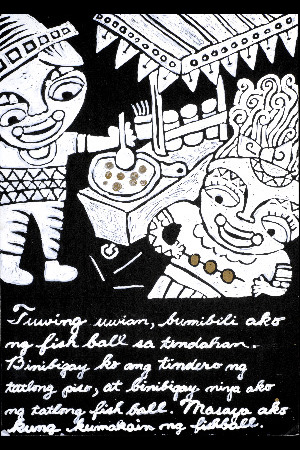 Tuwing uwian, bumibili ako
ng fish ball sa tindahan.
Binibigay ko ang tindero ng
tatlong piso, at binibigay niya ako
ng tatlong fish ball. Masaya ako
kung kumakain ng fishball.